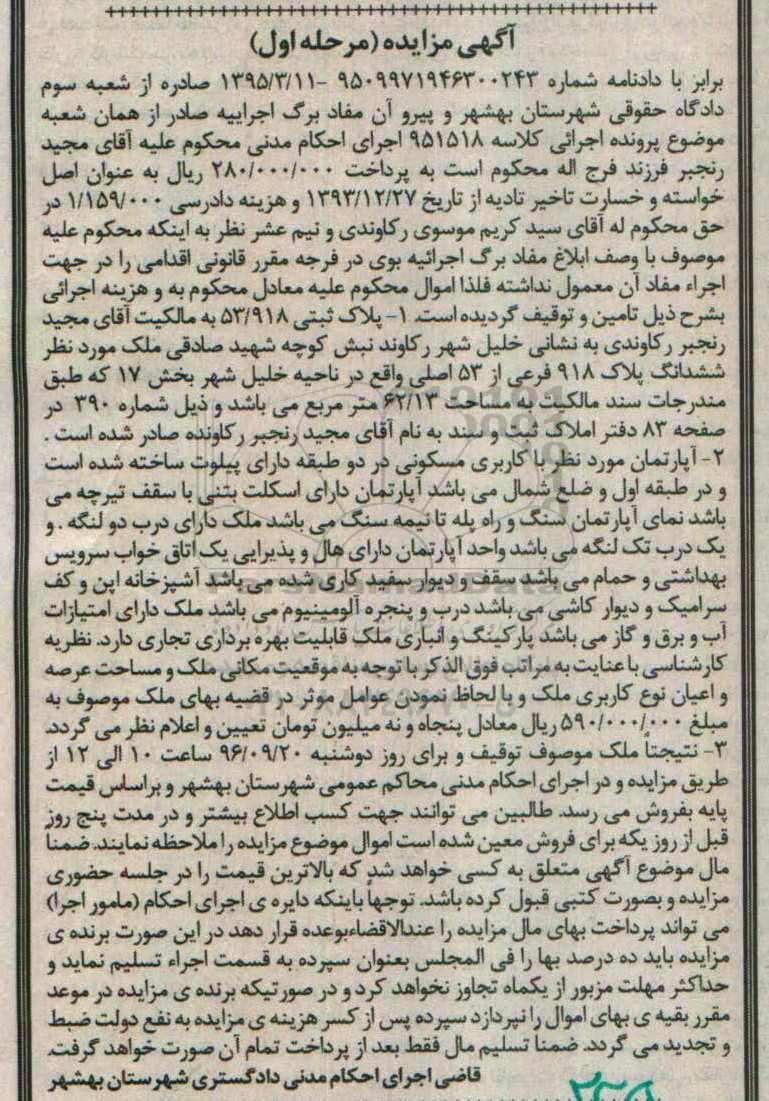 آگهی مزایده (مرحله اول)
برابر با دادنامه شماره ۹۵۰۹۹۷۱۹۴۶۳۰۰۲۴۳ -۱۳۹۵/۳/۱۱ صادره از شعبه سوم
دادگاه حقوقی شهرستان بهشهر و پیرو آن مفاد برگ اجراییه صادر از همان شعبه
موضوع پرونده اجرائی کلاسه ۹۵۱۵۱۸ اجرای احکام مدنی محکوم علیه آقای مجید
رنجبر فرزند فرج اله محکوم است به پرداخت ۲۸۰/۰۰۰/۰۰۰ ریال به عنوان اصل
خواسته و خسارت تاخیر تادیه از تاریخ ۱۳۹۳/۱۲/۲۷ و هزینه دادرسی ۱/۱۵۹/۰۰۰ در
حق محکوم له آقای سید کریم موسوی رکاوندی و نیم عشر نظر به اینکه محکوم علیه
موصوف با وصف ابلاغ مفاد برگ اجرائیه بوی در فرجه مقرر قانونی اقدامی را در جهت
اجراء مفاد آن معمول نداشته فلذا اموال محکوم علیه معادل محکوم به و هزینه اجرائی
بشرح ذیل تامین و توقیف گردیده است. ۱- پلاک ثبتی ۵۳/۹۱۸ به مالکیت آقای مجید
رنجبر رکاوندی به نشانی خلیل شهر رکاوند نبش کوچه شهید صادقی ملک مورد نظر
ششدانگ پلاک ۹۱۸ فرعی از ۵۳ اصلی واقع در ناحیه خلیل شهر بخش ۱۷ که طبق
مندرجات سند مالکیت به مساحت ۶۲/۱۳ متر مربع می باشد و ذیل شماره ۳۹۰ در
صفحه ۸۳ دفتر املاک ثبت و سند به نام آقای مجید رنجبر رکاونده صادر شده است .
۲- آپارتمان مورد نظر با کاربری مسکونی در دو طبقه دارای پیلوت ساخته شده است
و در طبقه اول و ضلع شمال می باشد آپارتمان دارای اسکلت بتنی با سقف تیرچه می
باشد نمای آپارتمان سنگ و راه پله تا نیمه سنگ می باشد ملک دارای درب دو لنگه . و
یک درب تک لنگه می باشد واحد آپارتمان دارای هال و پذیرایی یک اتاق خواب سرویس
بهداشتی و حمام می باشد سقف و دیوار سفید کاری شده می باشد آشپزخانه اپن و کف
سرامیک و دیوار کاشی می باشد درب و پنجره آلومینیوم می باشد ملک دارای امتیازات
آب و برق و گاز می باشد پارکینگ و انباری ملک قابلیت بهره برداری تجاری دارد. نظریه
کارشناسی با عنایت به مراتب فوق الذکر با توجه به موقعیت مکانی ملک و مساحت عرصه
و اعیان نوع کاربری ملک و با لحاظ نمودن عوامل موثر در قضیه بهای ملک موصوف به
مبلغ ۵۹۰/۰۰۰/۰۰۰ ریال معادل پنجاه و نه میلیون تومان تعیین و اعلام نظر می گردد.
۳- نتیجتاً ملک موصوف توقیف و برای روز دوشنبه ۹۶/۰۹/۲۰ ساعت ۱۰ الی ۱۲ از
طریق مزایده و در اجرای احکام مدنی محاکم عمومی شهرستان بهشهر و براساس قیمت
پایه بفروش می رسد. طالبین می توانند جهت کسب اطلاع بیشتر و در مدت پنج روز
قبل از روز یکه برای فروش معین شده است اموال موضوع مزایده را ملاحظه نمایند. ضمنا
مال موضوع آگهی متعلق به کسی خواهد شد که بالاترین قیمت را در جلسه حضوری
مزایده و بصورت کتبی قبول کرده باشد. توجها باینکه دایره ی اجرای احکام (مامور اجرا)
می تواند پرداخت بهای مال مزایده را عندالاقضاء بوعده قرار دهد در این صورت برنده ی
مزایده باید ده درصد بها را فی المجلس بعنوان سپرده به قسمت اجراء تسلیم نماید و
حداکثر مهلت مزبور از یکماه تجاوز نخواهد کرد و در صورتیکه برنده ی مزایده در موعد
مقرر بقیه ی بهای اموال را نپردازد سپرده پس از کسر هزینه ی مزایده به نفع دولت ضبط
و تجدید می گردد. ضمنا تسلیم مال فقط بعد از پرداخت تمام آن صورت خواهد گرفت.
قاضی اجرای احکام مدنی دادگستری شهرستان بهشهر